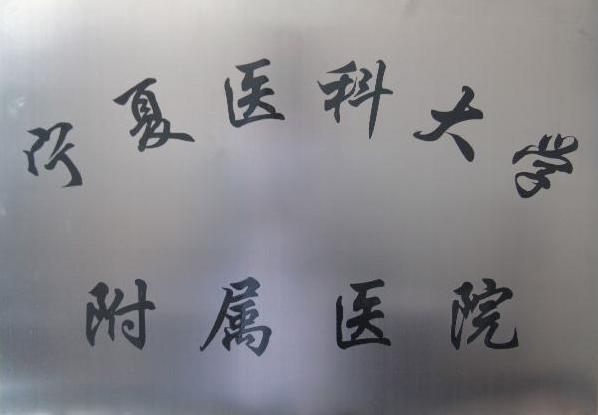 宁夏医科大学
附属医院